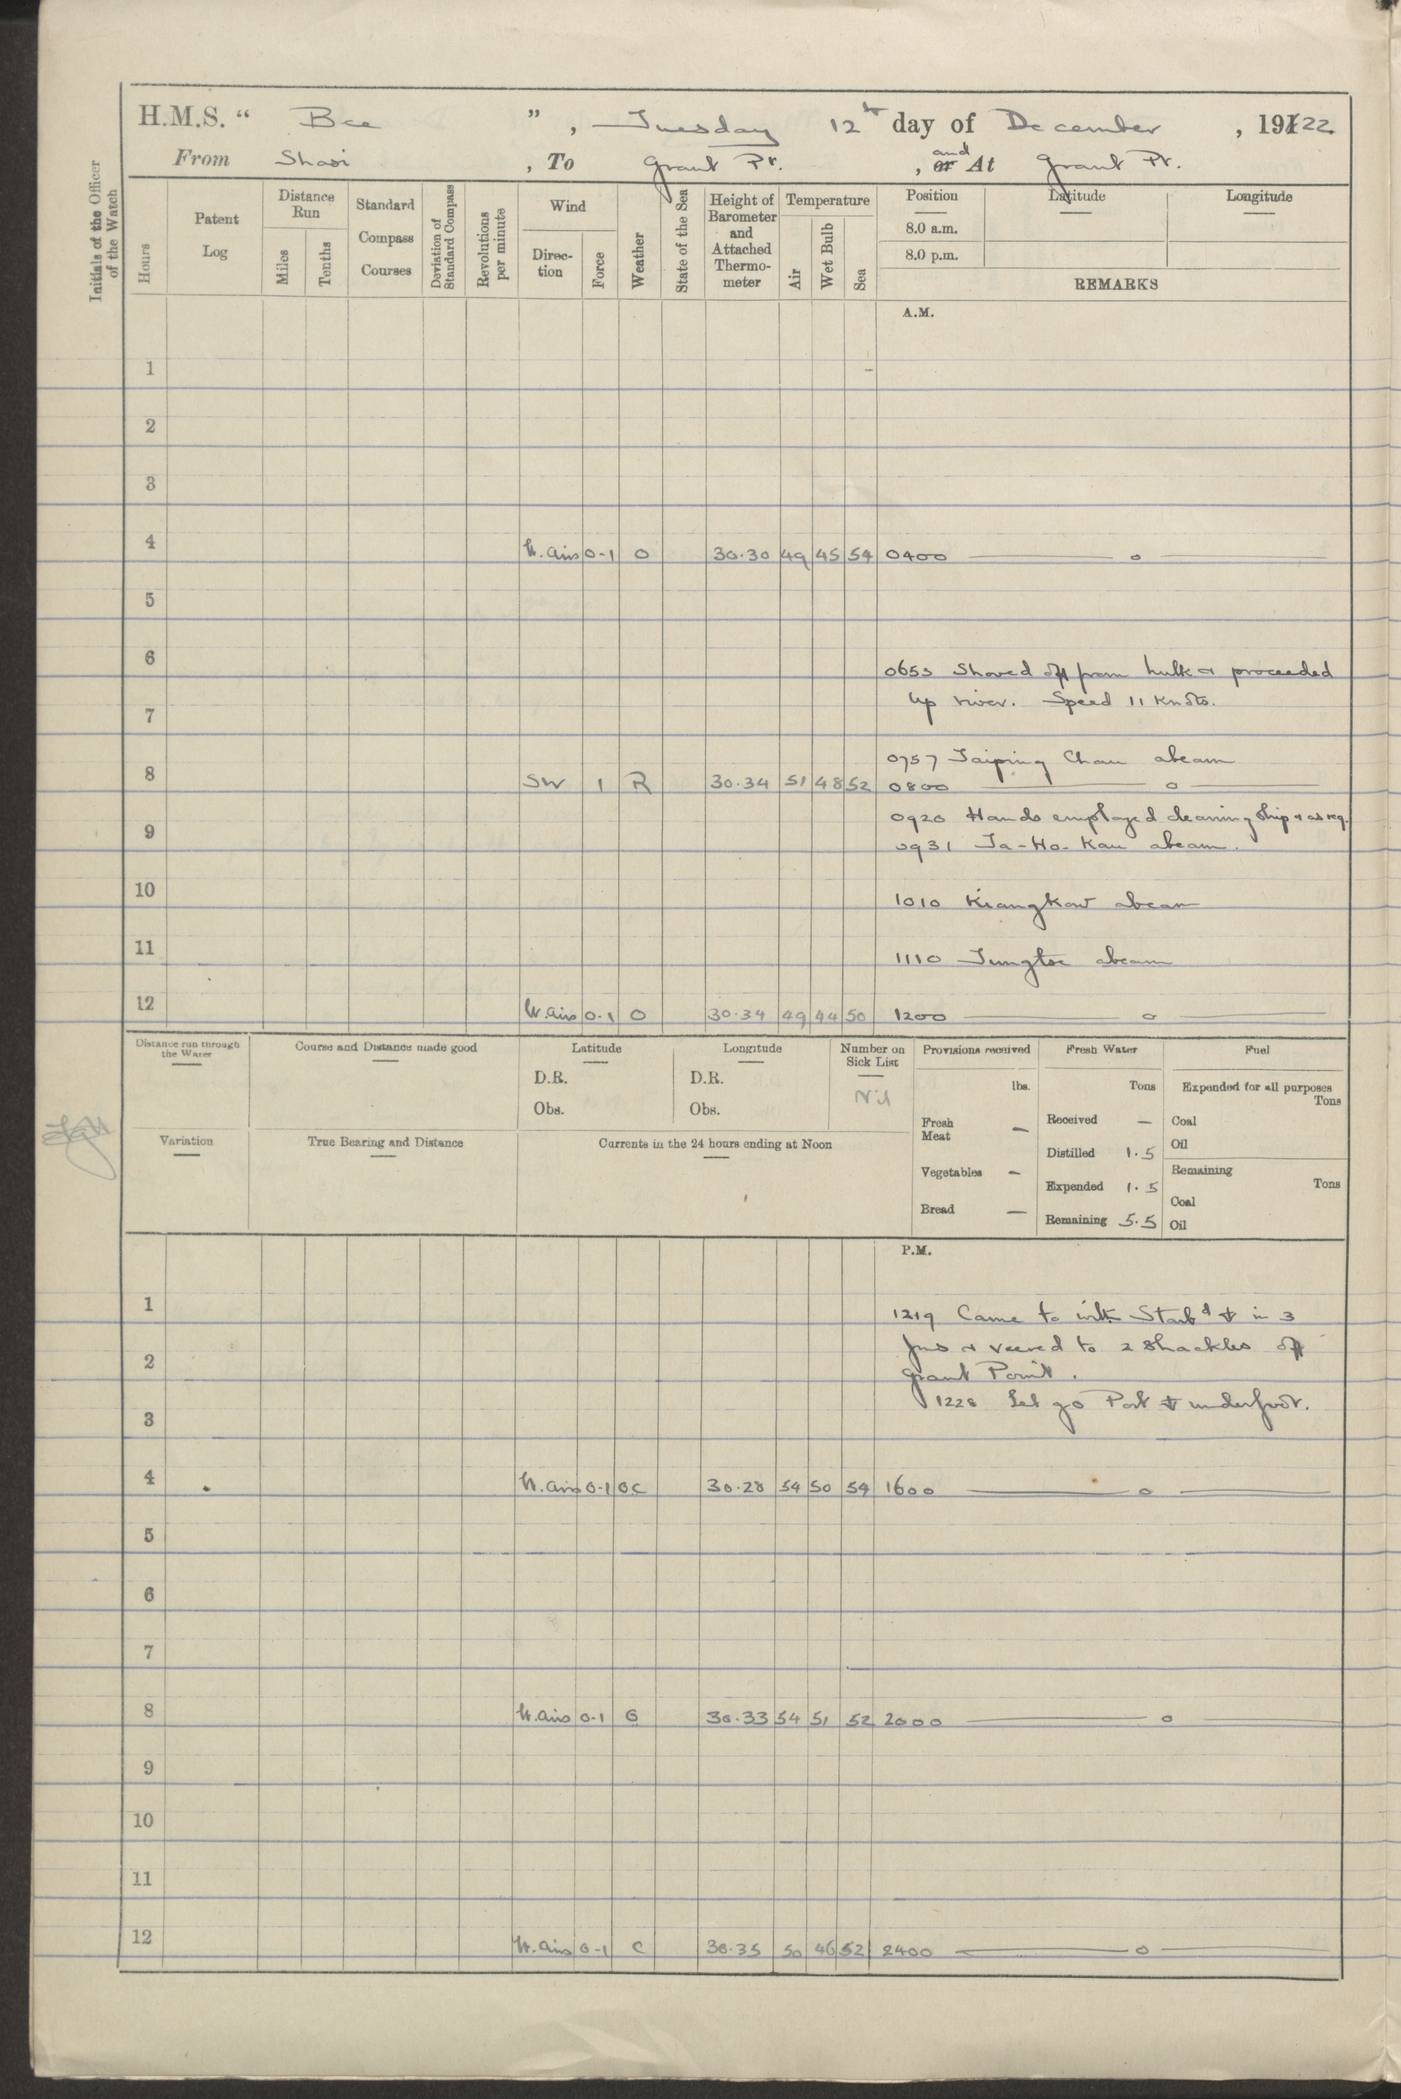 H.M.S. “ Bee ”, Tuesday 12th day of December, 19122
From Shasi, To Grant Pt., and or At Grant Pt.
Initials of the Officer of the Watch
Hours
Patent Log
Distance Run
Miles
Tenths
Standard Compass Courses
Deviation of Standard Compass
Revolutions per minute
Wind
Direction
Force
Weather
State of the Sea
Height of Barometer and Attached Thermometer
Temperature
Air
Wet Bulb
Sea
Position Latitude Longitude
8.0 a.m.
8.0 p.m.
REMARKS
A.M.
1
2
3
4 Lt. airs 0-1 O 30.30 49 45 54 0400 — o —
5
6
0653 Shoved off from hulk & proceeded
7 up river. Speed 11 Knots.
0757 Taiping Chau abeam
8 SW 1 R 30.34 51 48 52 0800 — o —
0920 Hands employed cleaning ship & as req.
9 0931 Ta-Ho-Kau abeam.
10 1010 Kiangkow abeam
11 1110 Tungtse abeam
12 Lt. airs 0-1 O 30.34 49 44 50 1200 — o —
Distance run through the Water
Course and Distance made good
Latitude
D.R.
Obs.
Longitude
D.R.
Obs.
Number on Sick List
Nil
Provisions received
lbs.
Fresh Meat —
Vegetables —
Bread —
Fresh Water
Tons
Received —
Distilled 1.5
Expended 1.5
Remaining 5.5
Fuel
Expended for all purposes
Tons
Coal
Oil
Remaining
Tons
Coal
Oil
Variation
True Bearing and Distance
Currents in the 24 hours ending at Noon
P.M.
1 1219 Came to with Starbd ⚓ in 3
2 fms & veered to 2 shackles off
Grant Point.
3 1228 Let go Port ⚓ underfoot.
4 Lt. airs 0-1 OC 30.28 54 50 54 1600 — o —
5
6
7
8 Lt. airs 0-1 C 30.33 54 51 52 2000 — o —
9
10
11
12 Lt. airs 0-1 C 30.35 50 46 52 2400 — o —